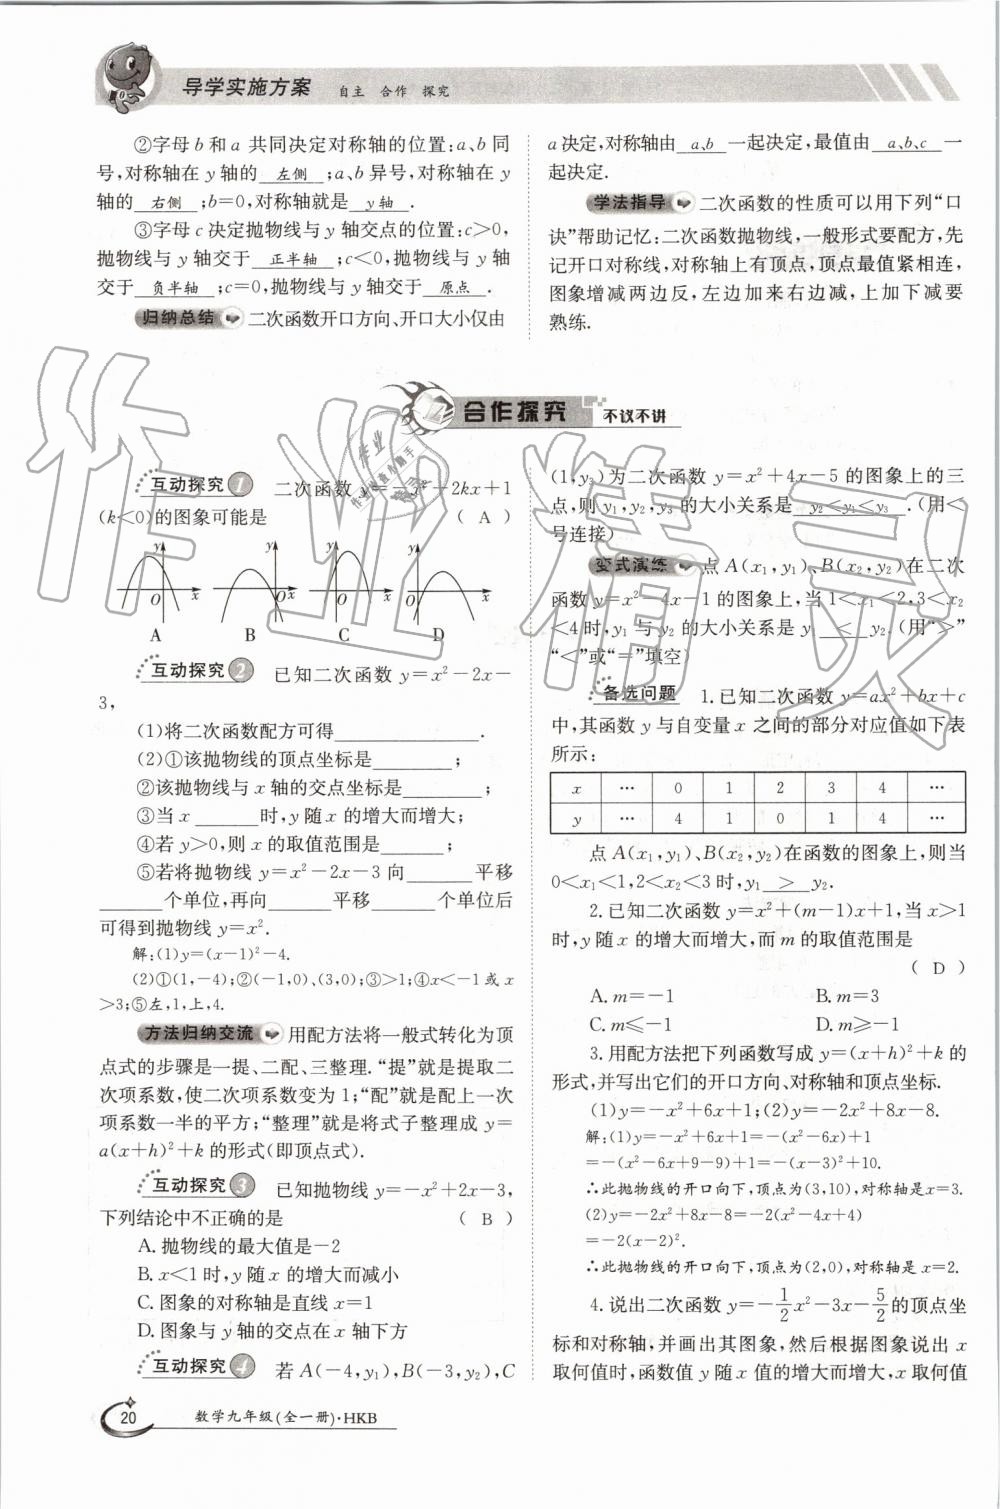 导学实施方案 自主 合作 探究
②字母b和a共同决定对称轴的位置:a、b同
号,对称轴在y轴的 左侧 ;a、b异号,对称轴在y
轴的 右侧 ;b=0,对称轴就是 y轴 .
③字母c决定抛物线与y轴交点的位置:c>0,
抛物线与y轴交于 正半轴 ;c<0,抛物线与y轴
交于 负半轴 ;c=0,抛物线与y轴交于 原点 .
归纳总结 二次函数开口方向、开口大小仅由
a决定,对称轴由 a、b 一起决定,最值由 a、b、c 一
起决定.
学法指导 二次函数的性质可以用下列“口
诀”帮助记忆:二次函数抛物线,一般形式要配方,先
记开口对称线,对称轴上有顶点,顶点最值紧相连,
图象增减两边反,左边加来右边减,上加下减要
熟练.
合作探究 不议不讲
互动探究1 二次函数 2kx+1
(k<0)的图象可能是 ( A )
y O x y O x y O x y O x
A B C D
互动探究2 已知二次函数y=x²-2x-
3,
(1)将二次函数配方可得______.
(2)①该抛物线的顶点坐标是______;
②该抛物线与x轴的交点坐标是______;
③当x______时,y随x的增大而增大;
④若y>0,则x的取值范围是______;
⑤若将抛物线y=x²-2x-3向______平移
______个单位,再向______平移______个单位后
可得到抛物线y=x².
解:(1)y=(x-1)²-4.
(2)①(1,-4);②(-1,0)、(3,0);③>1;④x<-1或x
>3;⑤左,1,上,4.
方法归纳交流 用配方法将一般式转化为顶
点式的步骤是一提、二配、三整理.“提”就是提取二
次项系数,使二次项系数变为1;“配”就是配上一次
项系数一半的平方;“整理”就是将式子整理成y=
a(x+h)²+k的形式(即顶点式).
互动探究3 已知抛物线y=-x²+2x-3,
下列结论中不正确的是 ( B )
A.抛物线的最大值是-2
B.x<1时,y随x的增大而减小
C.图象的对称轴是直线x=1
D.图象与y轴的交点在x轴下方
互动探究4 若A(-4,y₁),B(-3,y₂),C
(1,y₃)为二次函数y=x²+4x-5的图象上的三
点,则y₁,y₂,y₃的大小关系是 y₂<y₁<y₃ .(用<
号连接)
变式演练 点A(x₁,y₁)、B(x₂,y₂)在二次
函数y=x²-4x-1的图象上,当1<x₁<2,3<x₂
<4时,y₁与y₂的大小关系是y₁ < y₂.(用“>”
“<”或“=”填空)
备选问题 1.已知二次函数y=ax²+bx+c
中,其函数y与自变量x之间的部分对应值如下表
所示:
x … 0 1 2 3 4 …
y … 4 1 0 1 4 …
点A(x₁,y₁)、B(x₂,y₂)在函数的图象上,则当
0<x₁<1,2<x₂<3时,y₁ > y₂.
2.已知二次函数y=x²+(m-1)x+1,当x>1
时,y随x的增大而增大,而m的取值范围是
( D )
A.m=-1 B.m=3
C.m≤-1 D.m≥-1
3.用配方法把下列函数写成y=(x+h)²+k的
形式,并写出它们的开口方向、对称轴和顶点坐标.
(1)y=-x²+6x+1;(2)y=-2x²+8x-8.
解:(1)y=-x²+6x+1=-(x²-6x)+1
=-(x²-6x+9-9)+1=-(x-3)²+10.
∴此抛物线的开口向下,顶点为(3,10),对称轴是x=3.
(2)y=-2x²+8x-8=-2(x²-4x+4)
=-2(x-2)².
∴此抛物线的开口向下,顶点为(2,0),对称轴是x=2.
4.说出二次函数y=-1/2x²-3x-5/2的顶点坐
标和对称轴,并画出其图象,然后根据图象说出x
取何值时,函数值y随x值的增大而增大,x取何值
20 数学九年级(全一册)·HKB
作业精灵